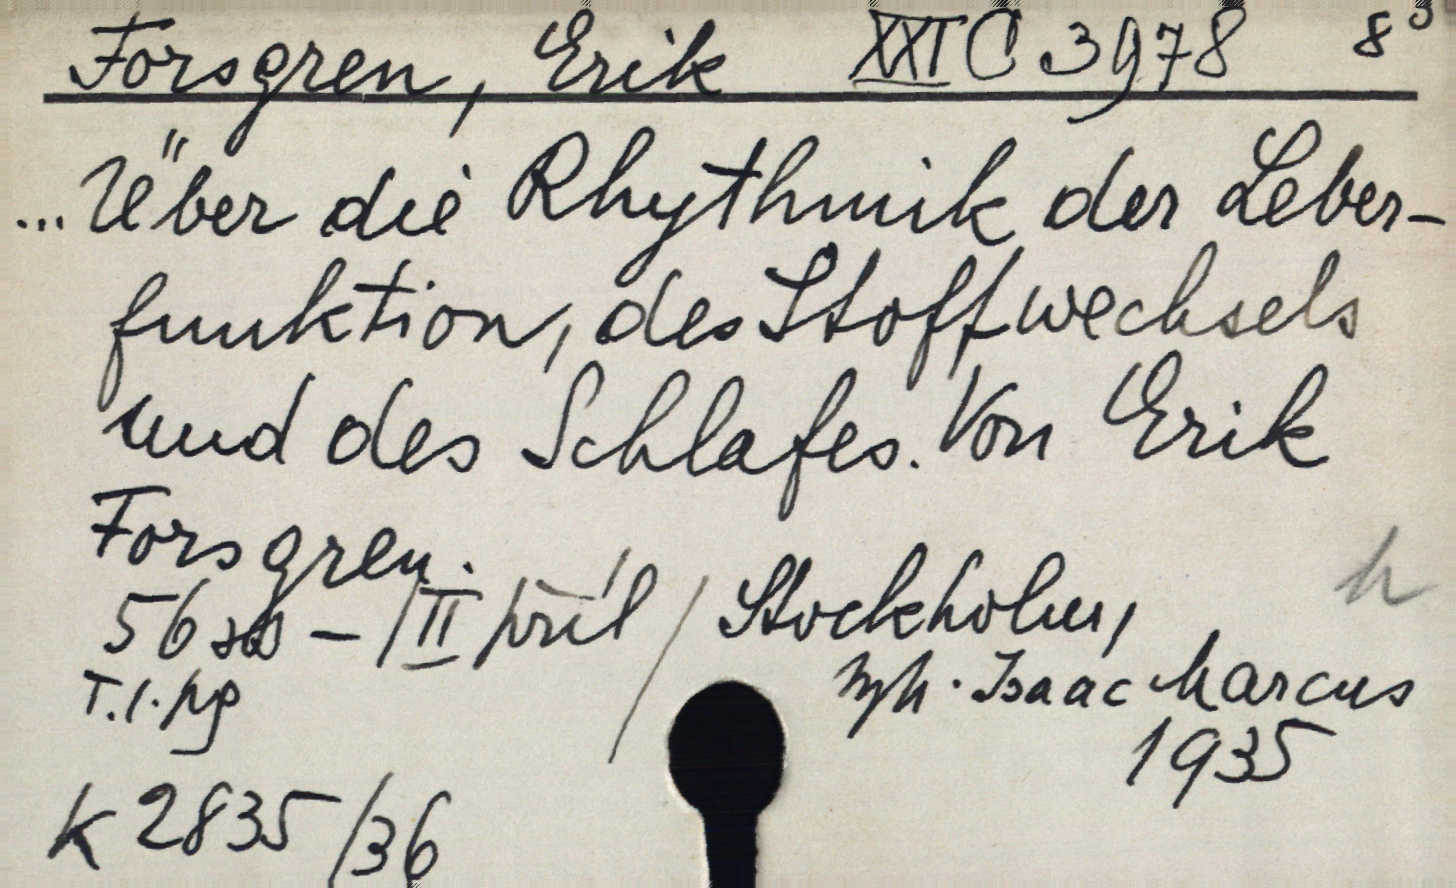 Forsgren, Erik XXI C 3978 8°
... Über die Rhythmik der Leber-
funktion, des Stoffwechsels
und des Schlafes. Von Erik
Forsgren.
56 ss - / II příl / Stockholm,
T.l. pg knh. Isaac Marcus
1935
K 2835/36